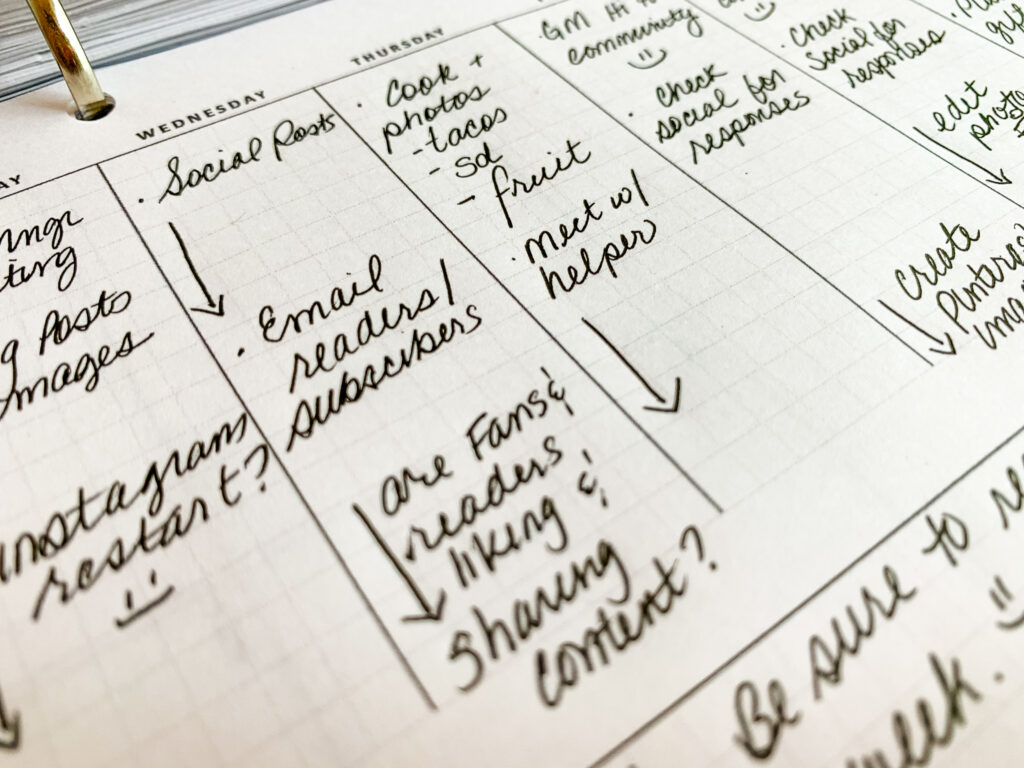 WEDNESDAY
THURSDAY
ting
Posts
images
instagram
restart?
· Social Posts
· Email
readers/
subscribers
are Fans &
readers
liking &
sharing
content?
· Cook +
photos
- tacos
- fruit
· Meet w/
helper
· GM Hi
community
· check
social for
responses
· Check
Social for
responses
edit
photos
create
Be sure to
week.